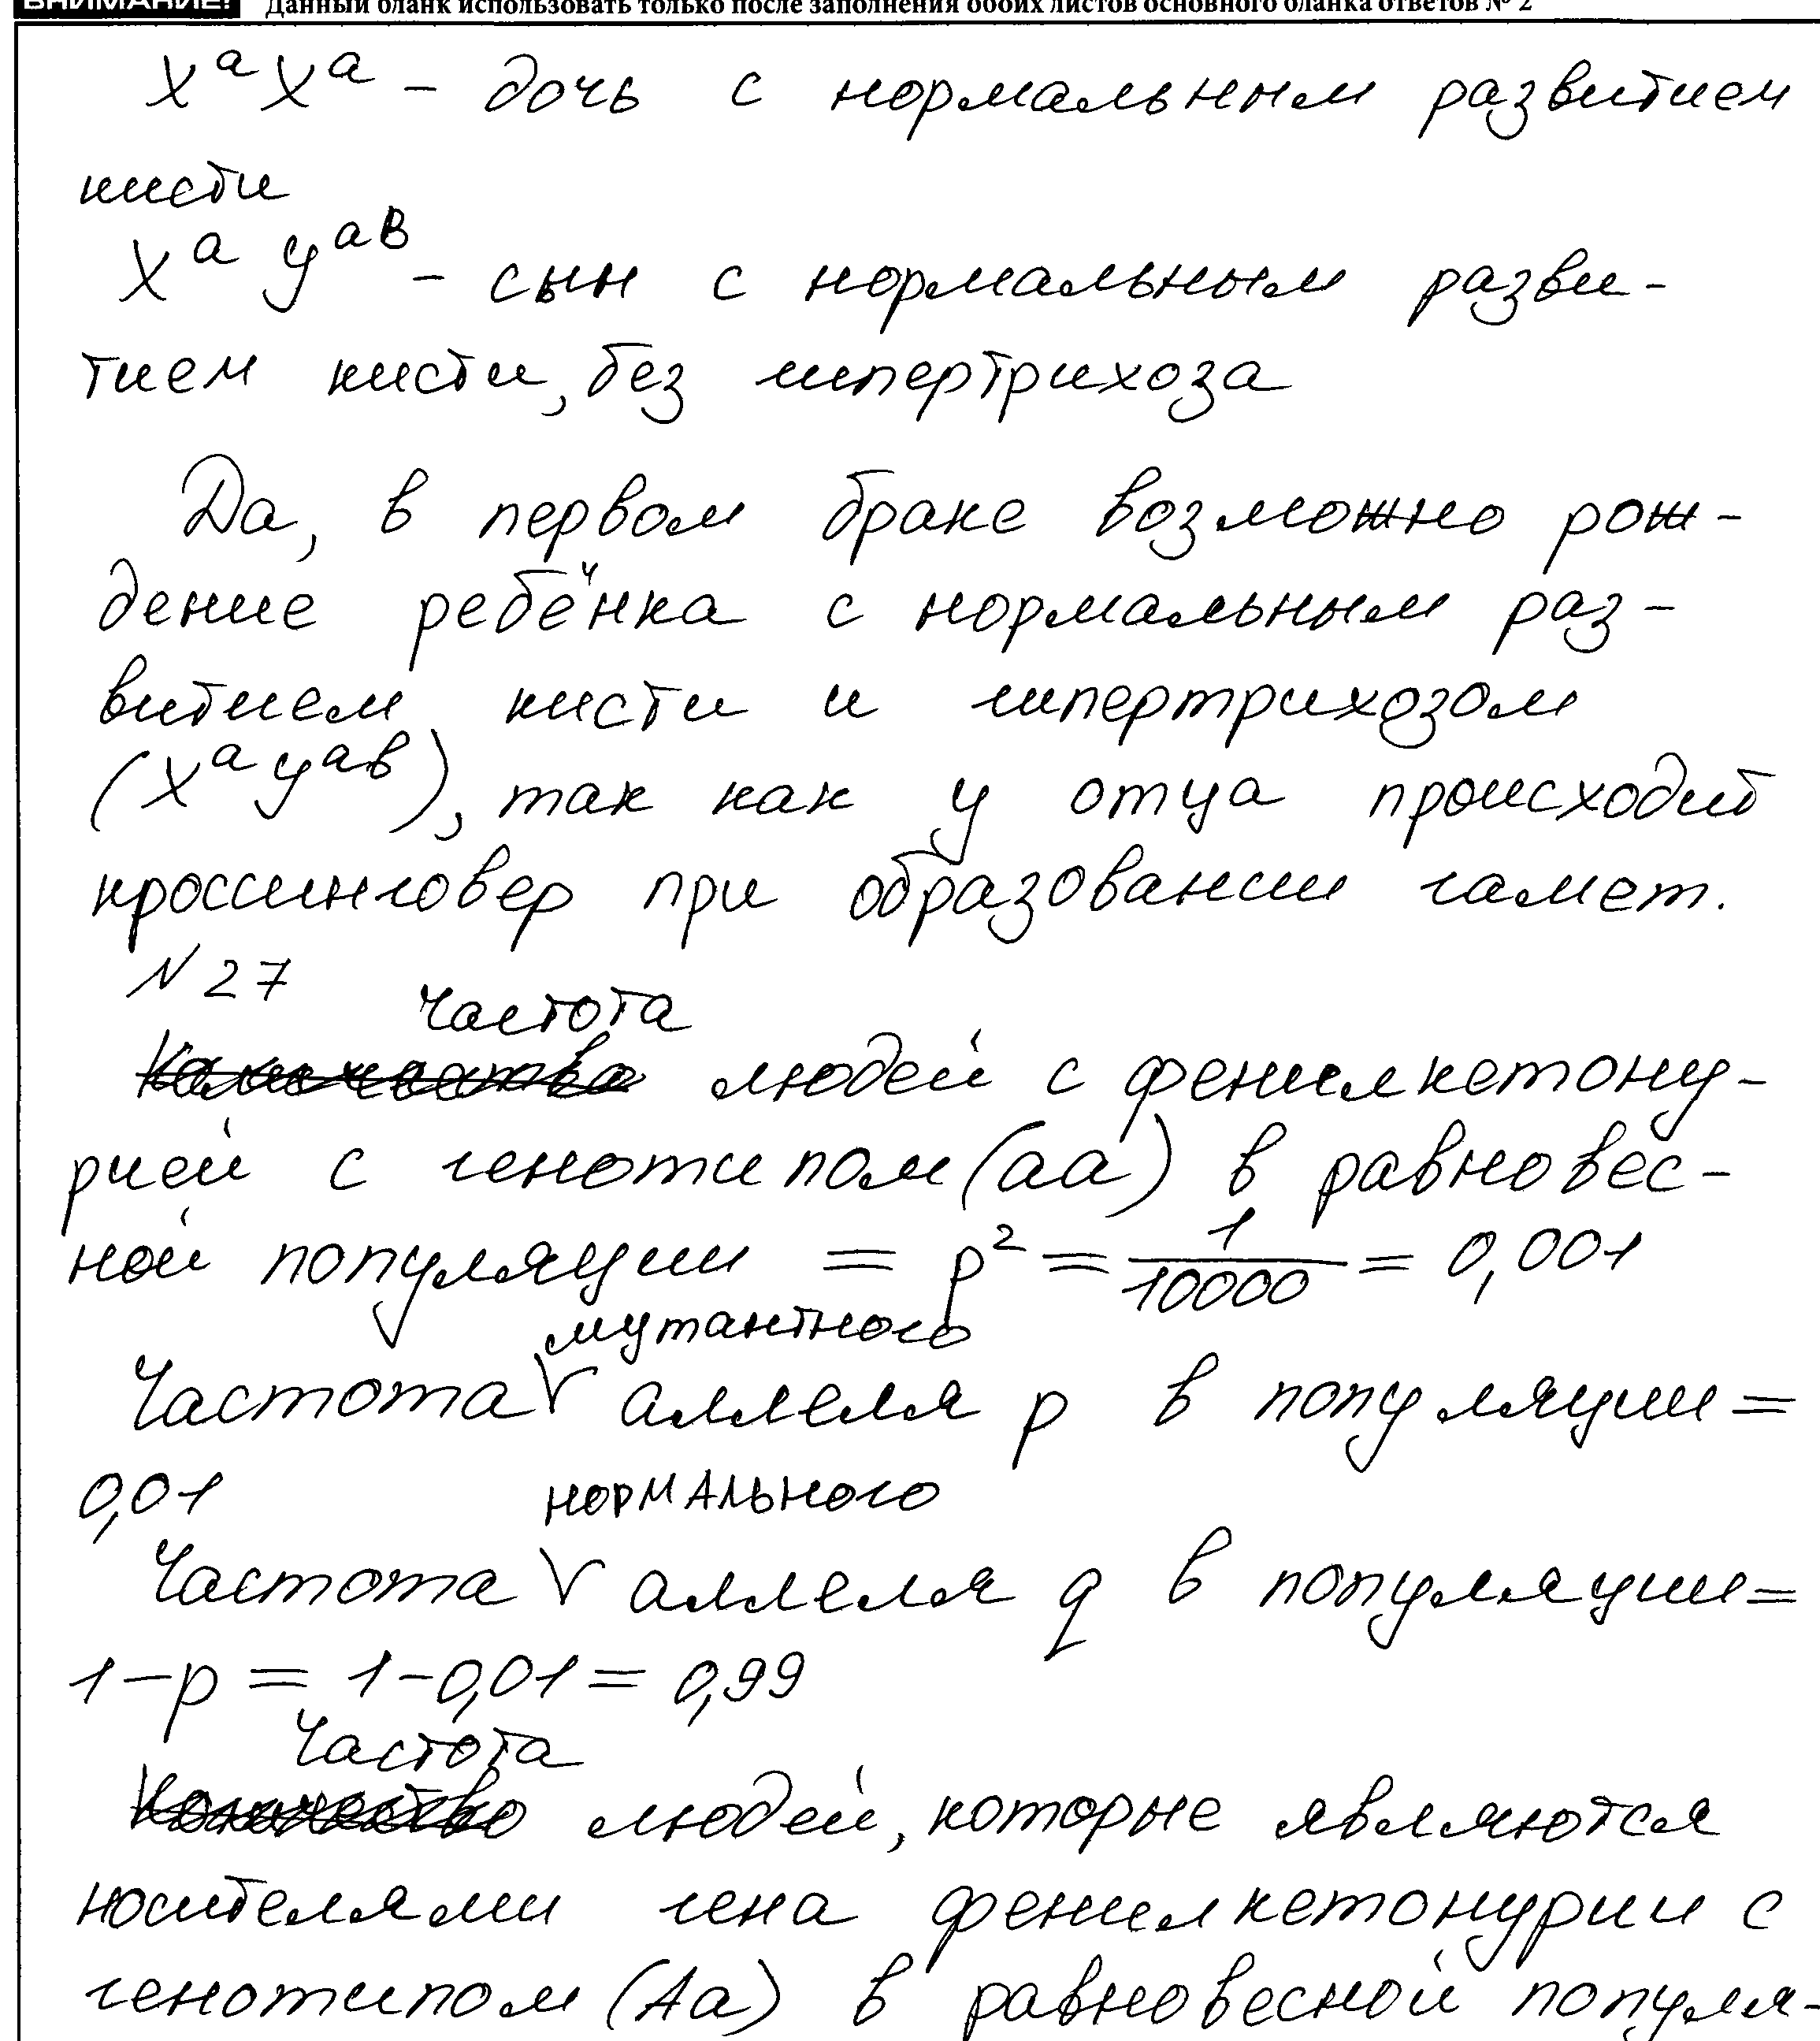 ВНИМАНИЕ! Данный бланк использовать только после заполнения обоих листов основного бланка ответов № 2
Xᵃ Xᵃ - дочь с нормальным развитием
кисти
Xᵃ Yᵃᴮ - сын с нормальным разви-
тием кисти, без гипертрихоза
Да, в первом браке возможно рож-
дение ребёнка с нормальным раз-
витием кисти и гипертрихозом
(Xᵃ Yᵃᵇ), так как у отца происходит
кроссинговер при образовании гамет.
N 27
Частота
Количество людей с фенилкетону-
рией с генотипом (аа) в равновес-
ной популяции = p² = 1/10000 = 0,001
мутантного
Частота V аллеля p в популяции =
0,01
нормального
Частота V аллеля q в популяции =
1-p = 1-0,01 = 0,99
Частота
Количество людей, которые являются
носителями гена фенилкетонурии с
генотипом (Аа) в равновесной популя-